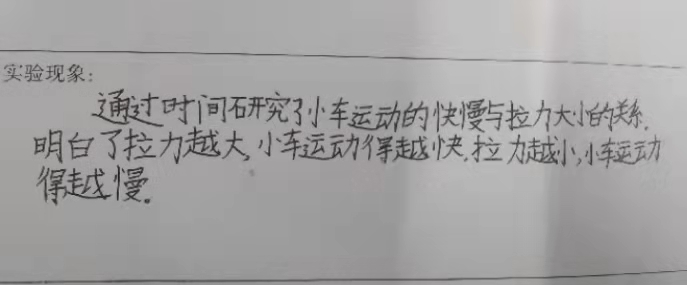 实验现象：
通过时间研究了小车运动的快慢与拉力大小的关系.
明白了拉力越大,小车运动得越快,拉力越小,小车运动
得越慢。